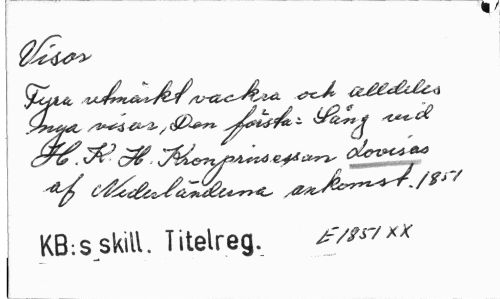 Visor
Fyra utmärkt vackra och alldeles
nya visor, Den första: Sång vid
H. K. H. Kronprinsessan Lovisas
af Nederländerna ankomst. 1851
KB:s skill. Titelreg. E1851 XX